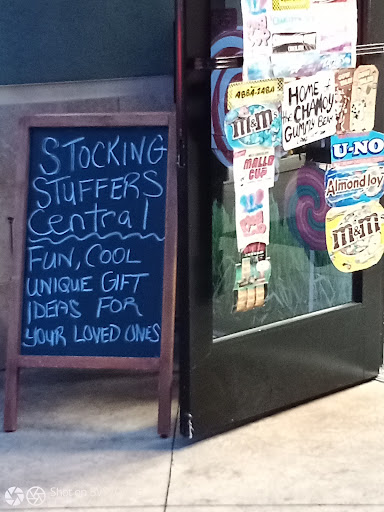 STOCKING
STUFFERS
Central
FUN, COOL
UNIQUE GIFT
IDEAS FOR
YOUR LOVED ONES
ABBA-ZABA
m&m's
HOME of
the CHAMOY
GUMMY BEAR
MALLO
CUP
U-NO
Almond Joy
m&m's
Shot on